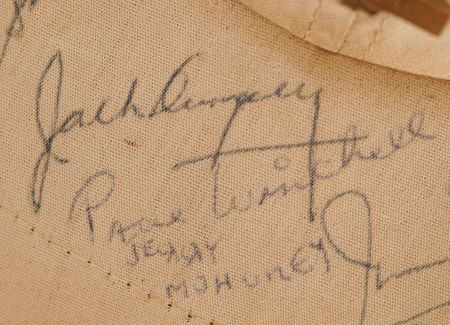 Jack Dempsey
Paul Winchell
JERRY
MAHONEY